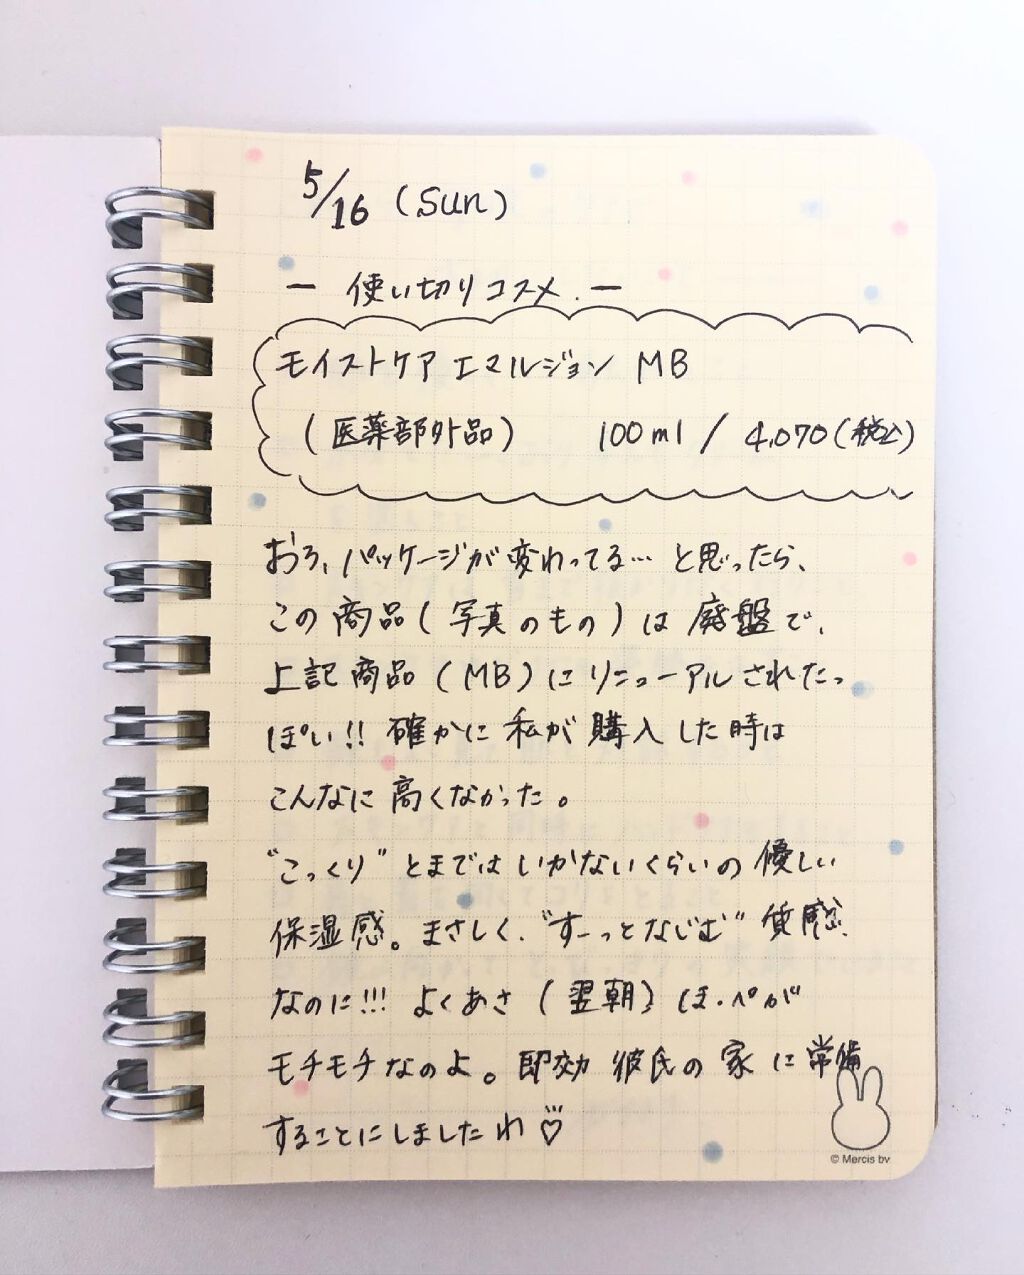 5/16 (Sun)
ー 使い切りコスメ. ー
モイストケア エマルジョン MB
(医薬部外品) 100ml / 4,070(税込)
おろ、パッケージが変わってる…と思ったら、
この商品(写真のもの)は廃盤で、
上記商品(MB)にリニューアルされたっ
ぽい!! 確かに私が購入した時は
こんなに高くなかった。
"こっくり"とまではいかないくらいの優しい
保湿感。まさしく、"すーっとなじむ"質感、
なのに!!! よくあさ(翌朝)ほっぺが
モチモチなのよ。即効 彼氏の家に常備
することにしましたわ♡
© Mercis bv